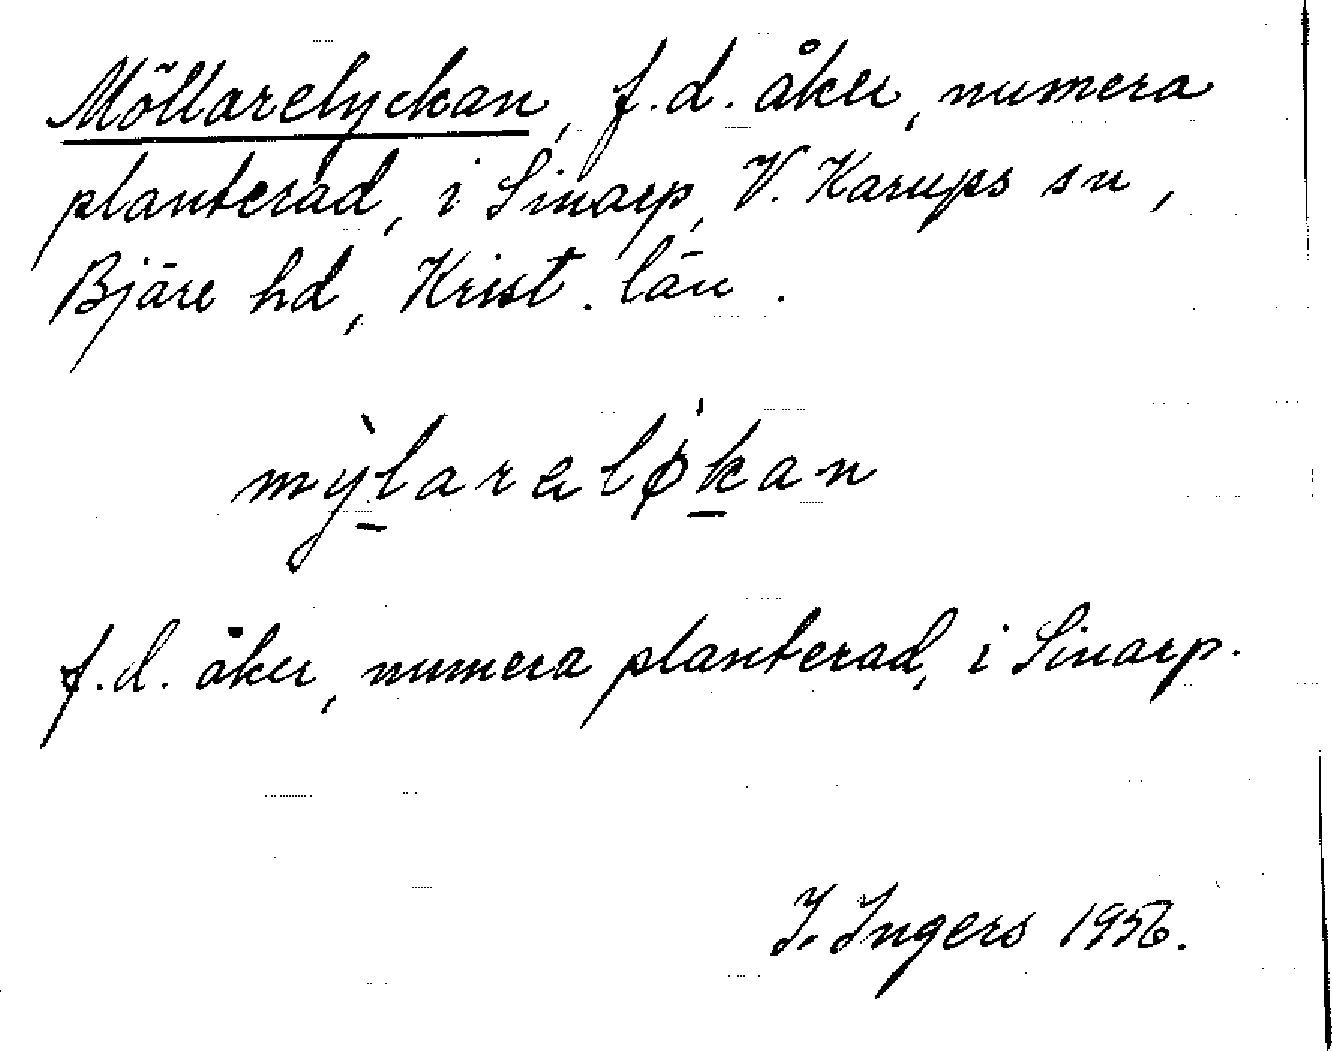 Möllarelyckan, f.d. åker, numera
planterad, i Sinarp, V. Karups sn,
Bjäre hd, Krist. län.
mỳlarəløkan
f.d. åker, numera planterad, i Sinarp.
I. Ingers 1956.